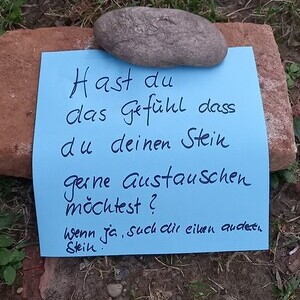 Hast du
das Gefühl dass
du deinen Stein
gerne austauschen
möchtest?
Wenn ja, such dir einen anderen
Stein.